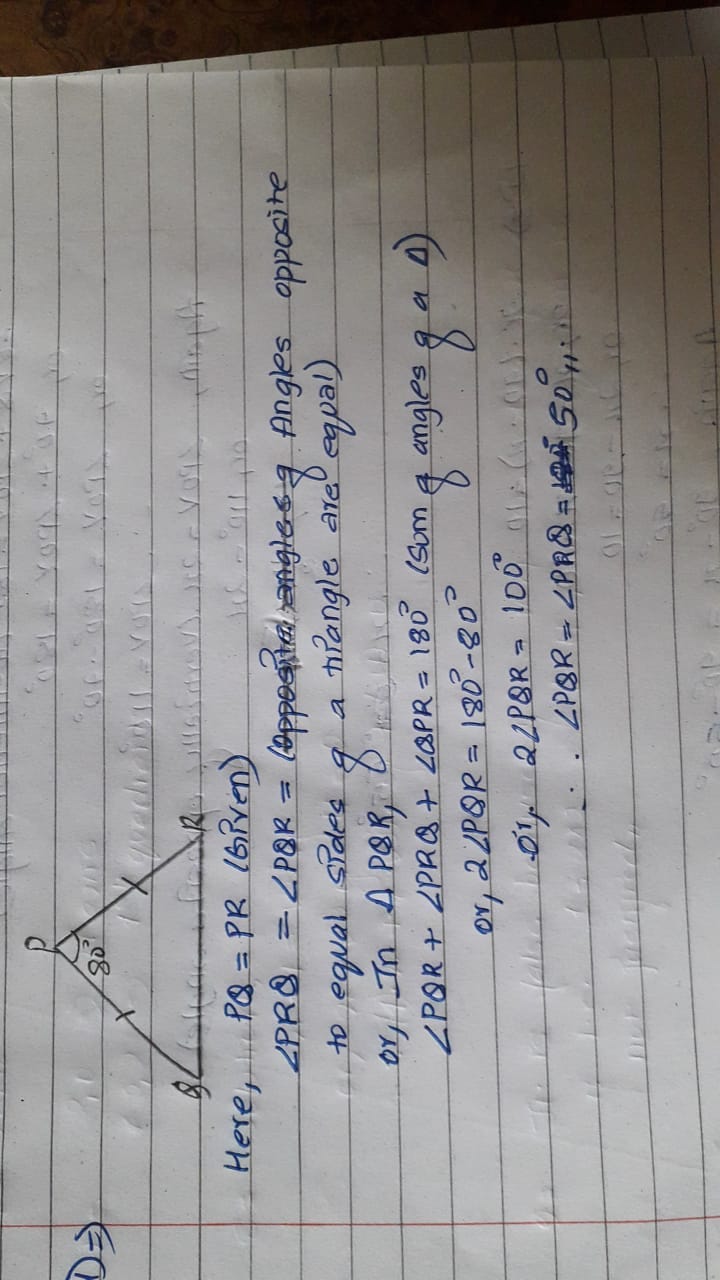 1) ⇒
P
80°
Q R
Here, PQ = PR (Given)
∠PRQ = ∠PQR = (Opposite angles of Angles opposite
to equal sides of a triangle are equal)
or, In Δ PQR,
∠PQR + ∠PRQ + ∠QPR = 180° (Sum of angles of a Δ)
or, 2∠PQR = 180° - 80°
or, 2∠PQR = 100°
∴ ∠PQR = ∠PRQ = 50°,,.